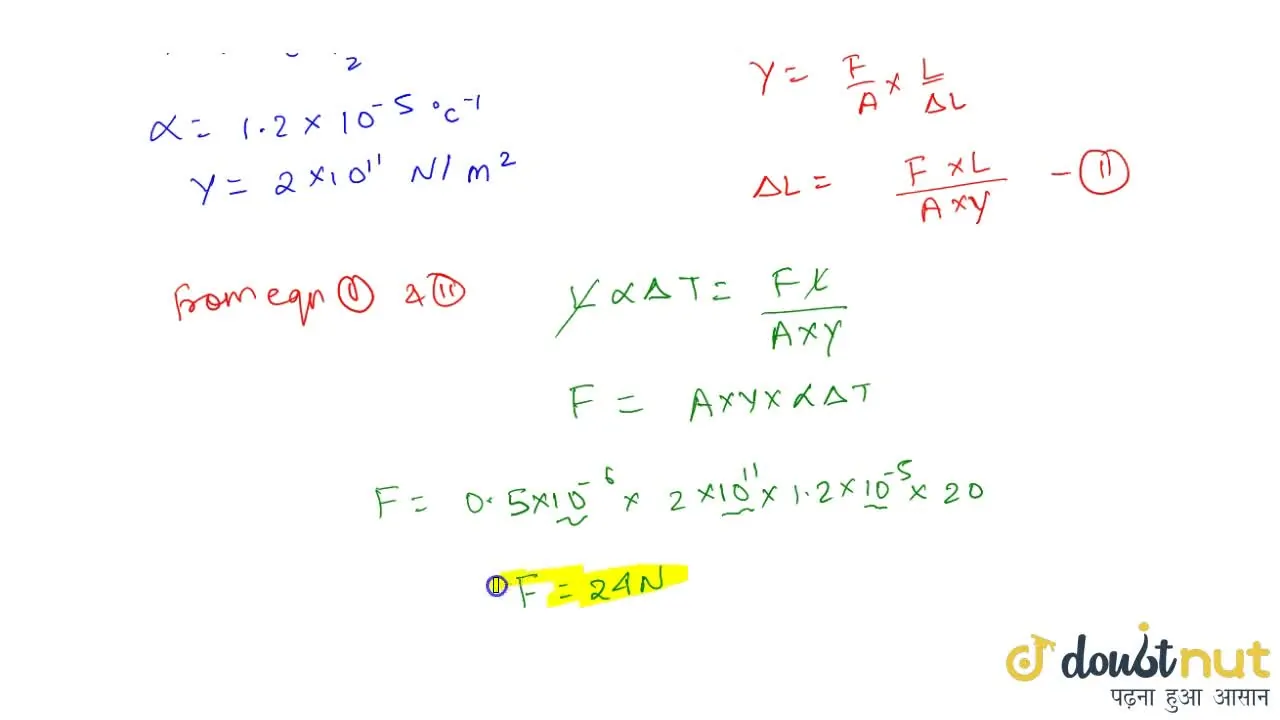 2
α = 1.2 × 10⁻⁵ °C⁻¹
Y = 2 × 10¹¹ N/m²
Y = F/A × L/ΔL
ΔL = F × L / A × Y - (II)
from eqn (I) & (II)
L α Δ T = F L / A × Y
F = A × Y × α Δ T
F = 0.5 × 10⁻⁶ × 2 × 10¹¹ × 1.2 × 10⁻⁵ × 20
F = 24 N
doubtnut
पढ़ना हुआ आसान